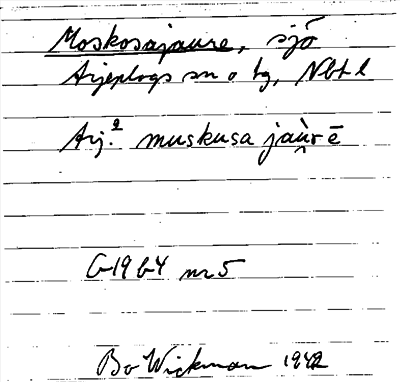 Moskosajaure, sjö
Arjeplogs sn o tg, Nbt l
Arj. muskusa jau̯rē
G1964 nr 5
Bo Wickman 1942